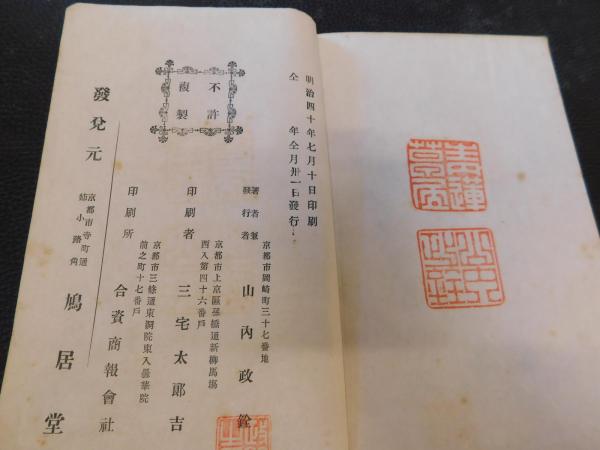 明治四十年七月十日印刷
仝　年仝月卅一日發行
不許
複製
著者兼
發行者
京都市岡崎町三十七番地
山內政銓
印刷者
京都市上京區蛭子橋通新柳馬場
西入第四十六番戶
三宅太郞吉
印刷所
京都市三條通東洞院東入曇華院
前之町十七番戶
合資商報會社
發兌元
京都市寺町通
姉小路角
鳩居堂
靑蓮